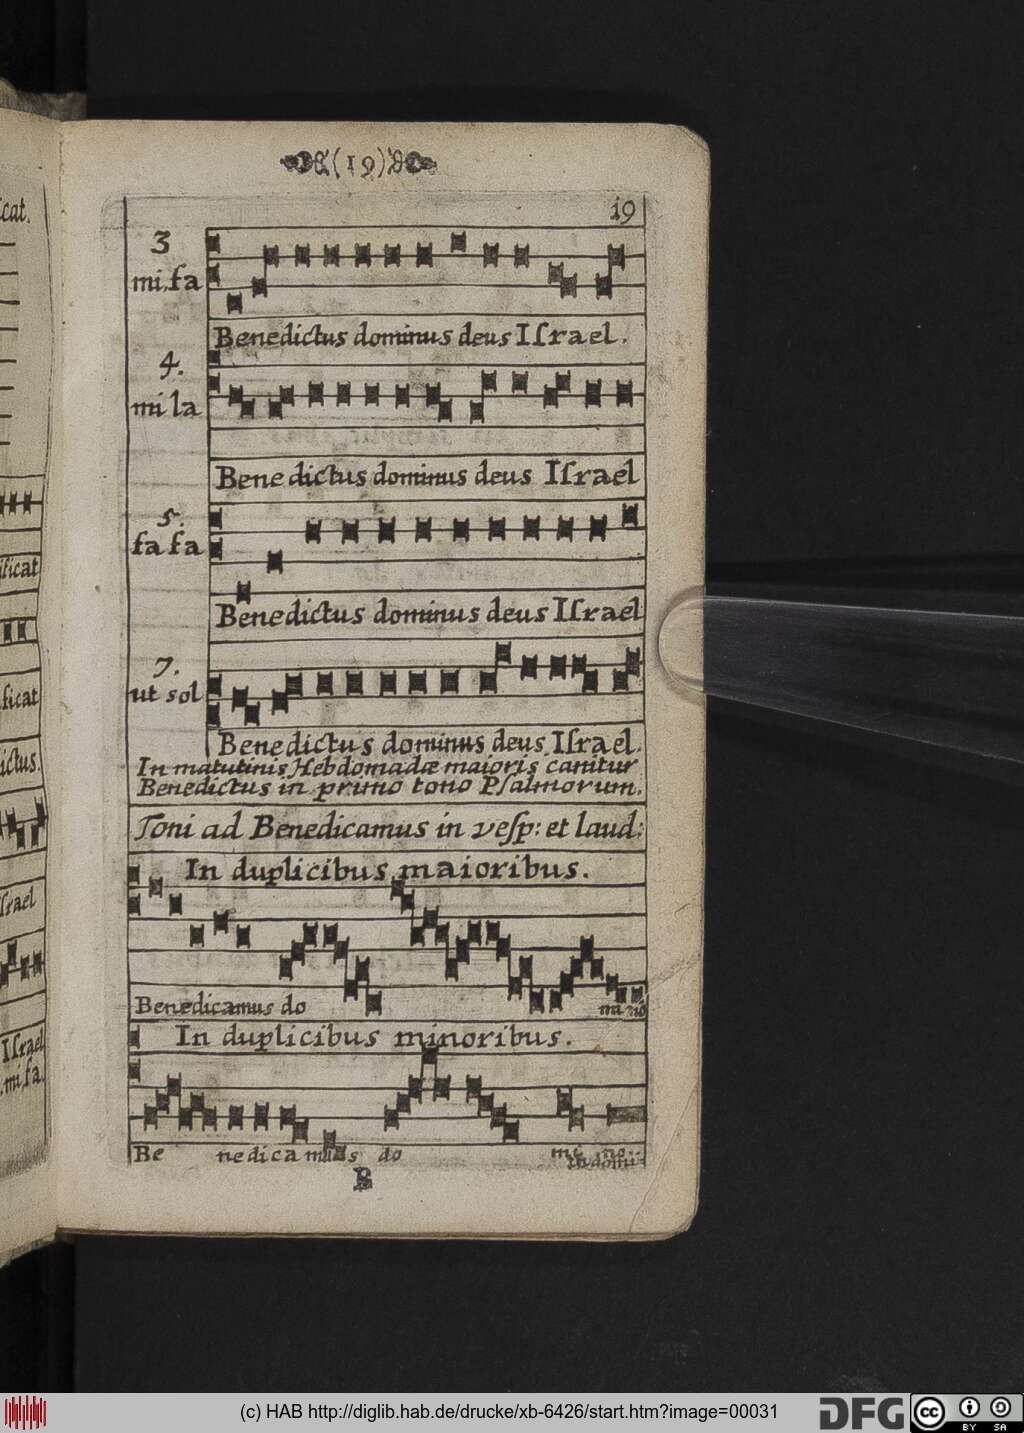 (19)
19
3
mi, fa
Benedictus dominus deus Iſrael.
4.
mi la
Benedictus dominus deus Iſrael
5.
fa fa
Benedictus dominus deus Iſrael
7.
ut sol
Benedictus dominus deus Iſrael.
In matutinis Hebdomadæ maioris canitur
Benedictus in primo tono Pſalmorum.
Toni ad Benedicamus in veſp: et laud:
In duplicibus maioribus.
Benedicamus do
In duplicibus minoribus.
Be nedicamus do mi no.
B
cat.
ificat
ificat
ictus.
ſrael
Iſrael
mi, fa.
(c) HAB http://diglib.hab.de/drucke/xb-6426/start.htm?image=00031
DFG
cc
BY SA